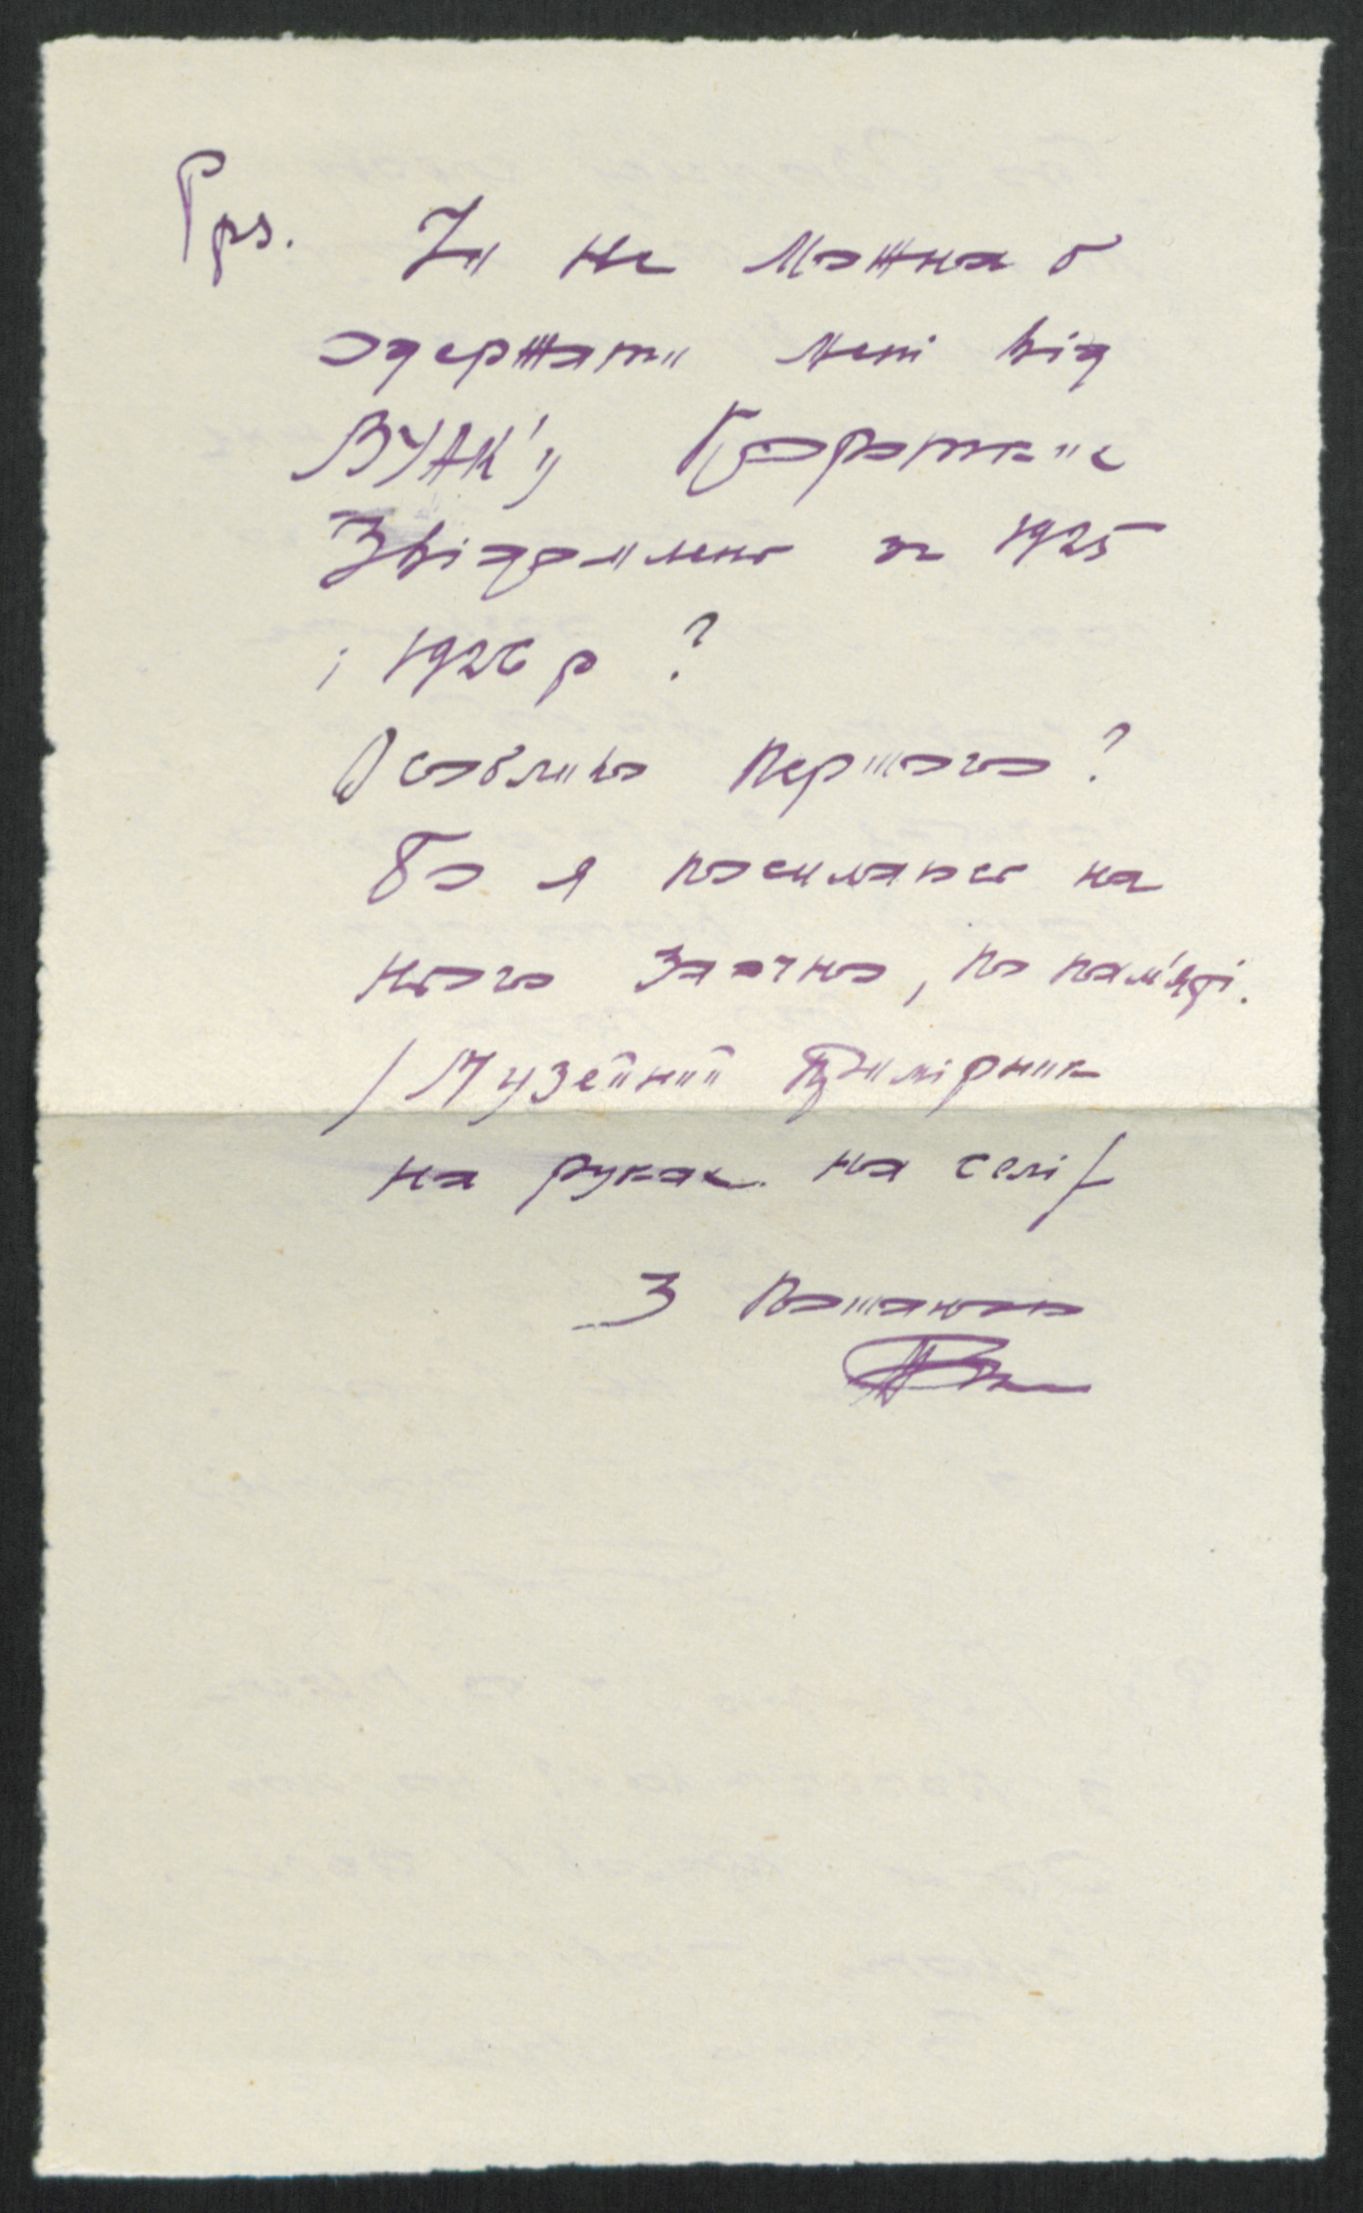 Pps. Чи не можна б
одержати мені від
ВУАК'у Коротке
Звідомлення за 1925
і 1926 р ?
Особливо першого ?
Бо я посилаюсь на
нього заочно, по пам'яті.
/ Музейний примірник
на руках на селі /
З пошаною